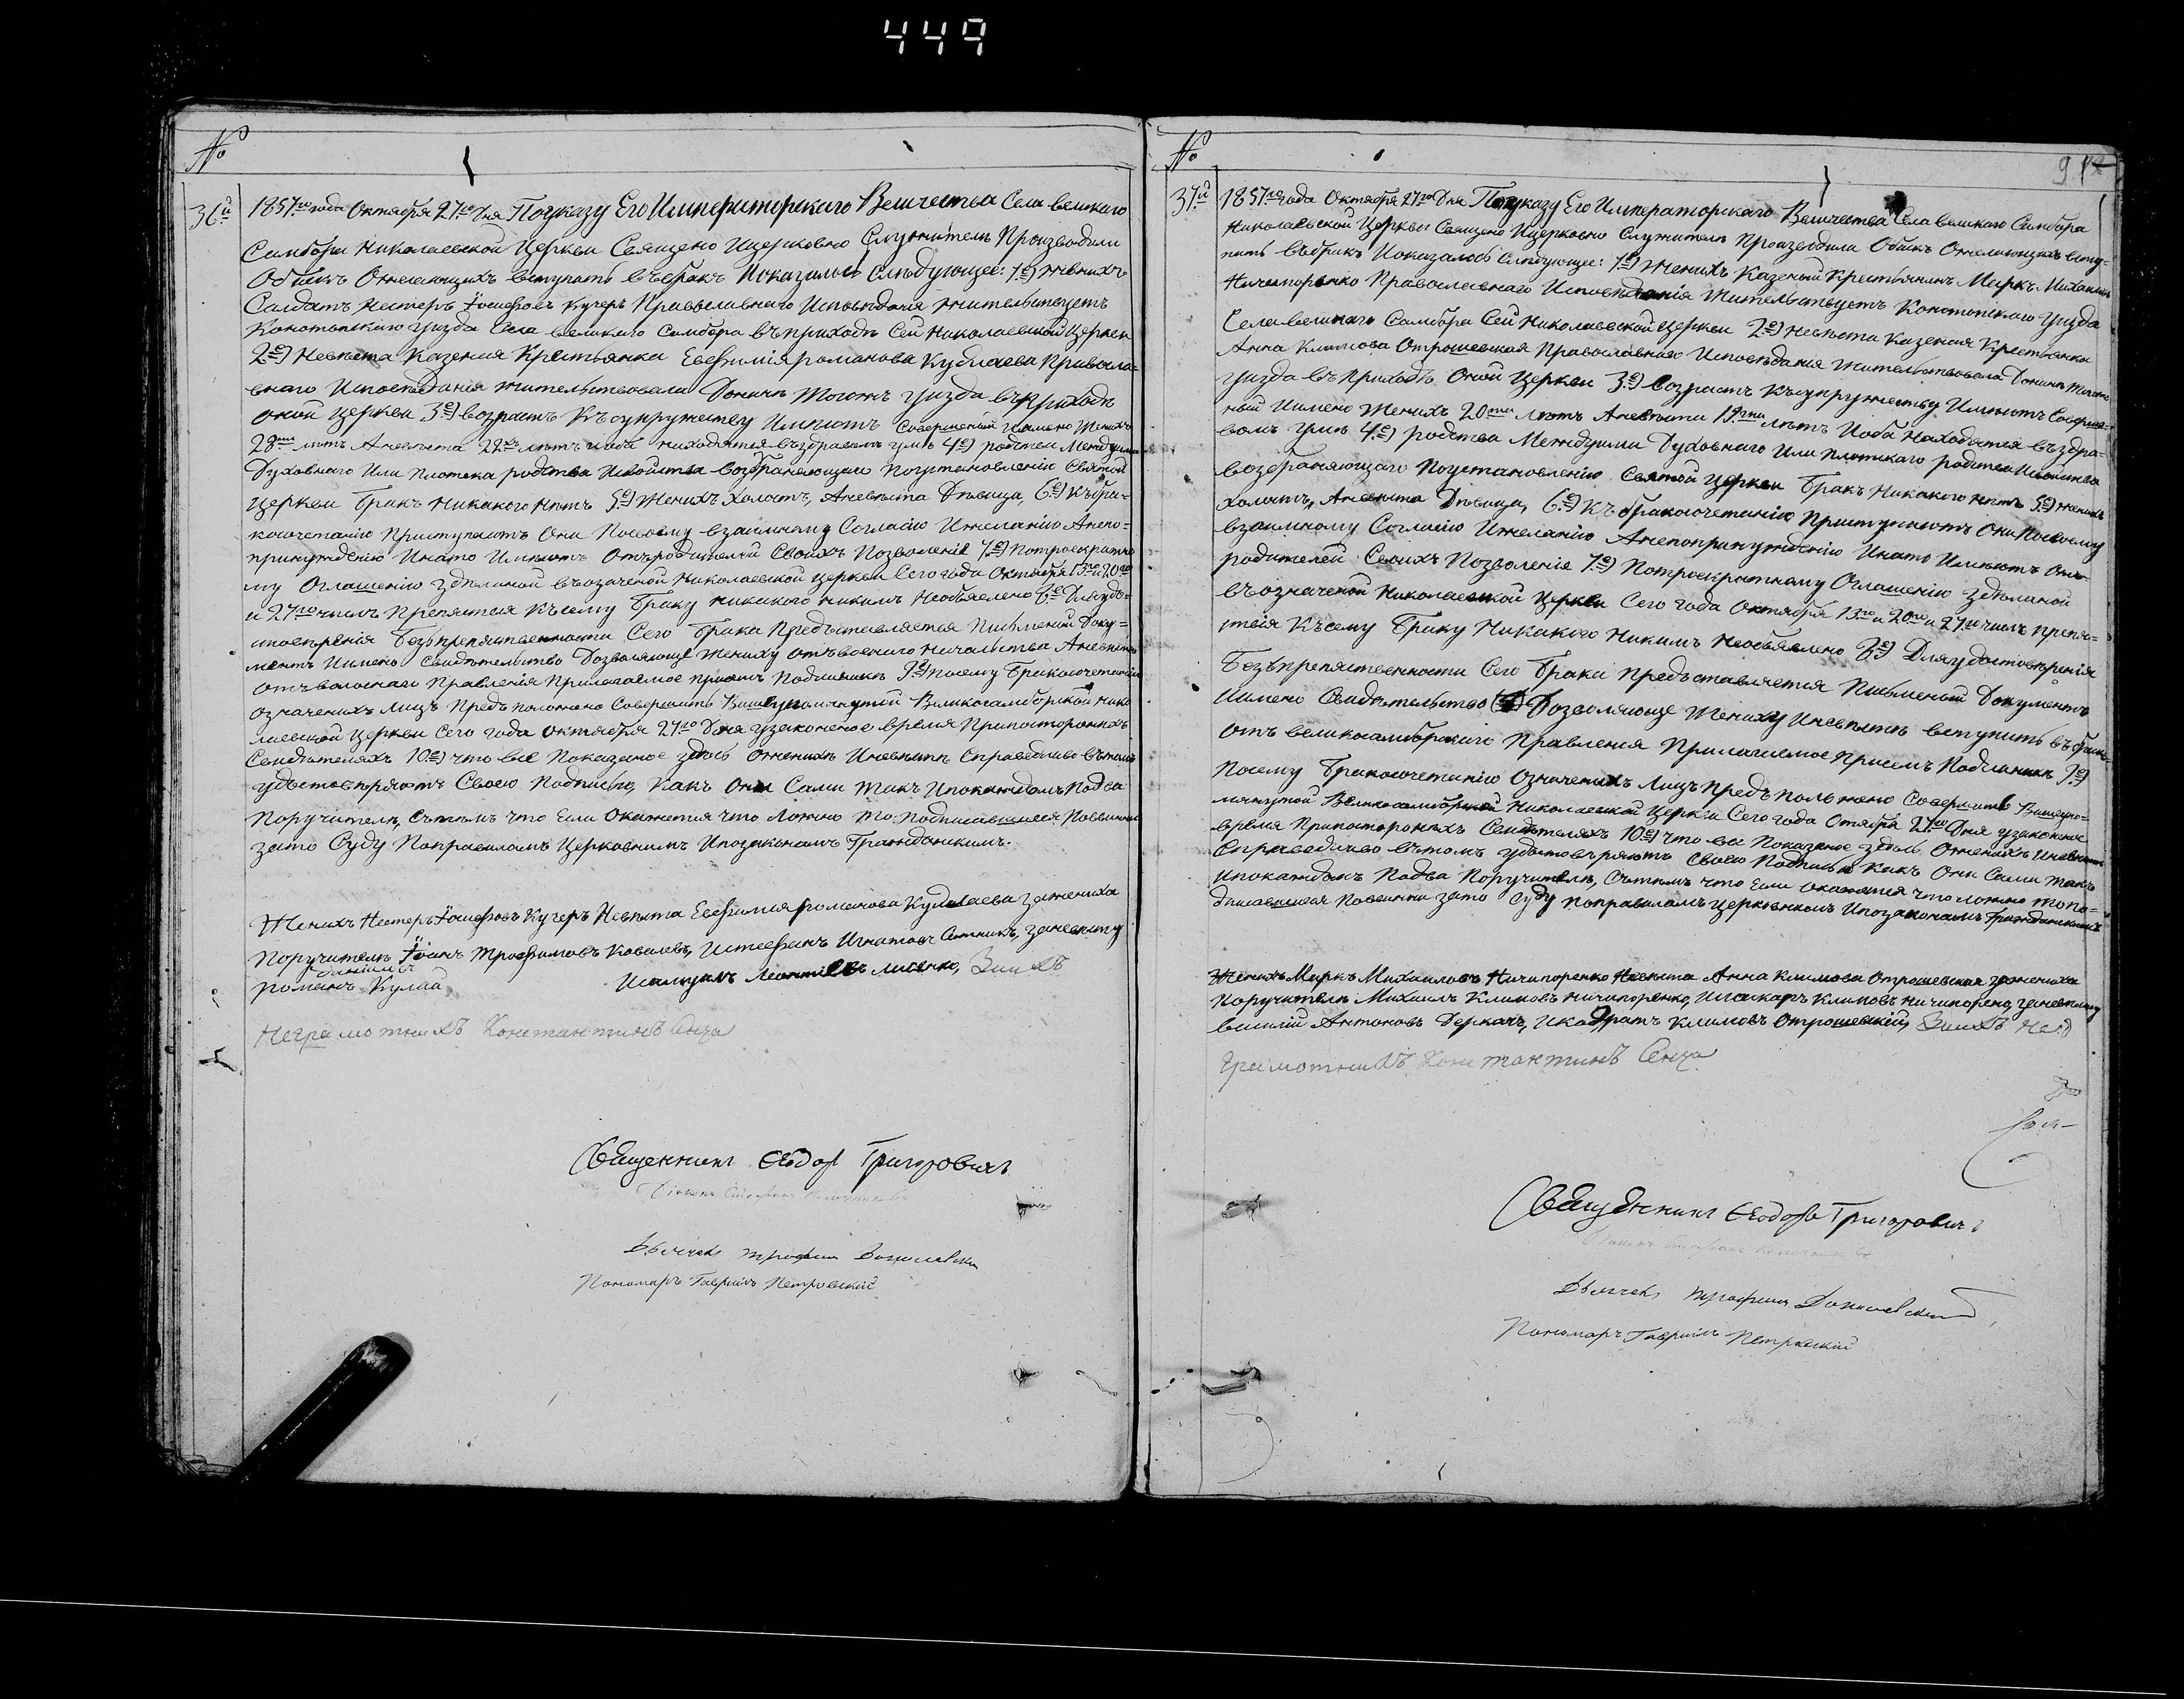 449
№
36й 1857го года Октября 27го Дня По указу Его Императорскаго Величества Села великаго
Самбора Николаевской Церкви Священо Ицерковно Служители Производили
Обыскъ Ожелающихъ вступать въбракъ Показалось Слѣдующее: 1е) Женихъ
Салдатъ Нестеръ Іосифовъ Кучеръ Православнаго Исповѣданія жительствуетъ
Конотопскаго уизда Села великаго Самбора въприходѣ Сей Николаевской Церкви
2е) Невѣста Казеная Крестьянка Евфимія романова Кулаева Правосла-
внаго Исповѣданія жительствовала Донинѣ Тогожъ уизда въПриходѣ
Оной Церкви 3е) возрастъ Къ супружеству Имѣютъ Совершеный Иимено Женихъ
28ми лѣтъ Аневѣста 22хъ лѣтъ Иоба находятся въздравомъ умѣ 4е) родства Междуими
Духовнаго Или Плотскаго родства Исвойства возбраняющаго Поустановленію Святой
Церкви Бракъ Никакого Нѣтъ 5е) Женихъ Холостъ, Аневѣста Дѣвица, 6е) Къбра-
косочетанію Приступаютъ Они Посвоему взаимному Согласію Ижеланію Анепо-
принужденію Инато Имѣютъ Отъродителей Своихъ Позволеніе 7е) Потроекратно
му Оглашенію Здѣланой въозначеной Николаевской Церкви Сего года Октября 13го 20го
и 27го числъ Препятствія Късему Браку Никакого Никимъ Необъявлено 8е) Дляудо-
стоверенія Безъпрепятственности Сего Брака Предъставляется Письменой Доку-
ментъ Иимено Свидѣтельство Дозволяюще Жениху отъвоенаго Начальства Аневѣстѣ
Отъволоснаго Правленія Прилагаемое присемъ Подлиникъ 9е) Посему Бракосочетаніе
Означеныхъ Лицъ Предъположено Совершить Вишеупомянутой Великосамборской Нико
лаевской Церкви Сего года Октября 27го Дня узаконеное время Припостороныхъ
Свидѣтеляхъ 10е) что все Показаное здѣсь Оженихѣ Иневѣстѣ Справедливо вътомъ
удостовѣряютъ Своею Подписью, Какъ Они Сами такъ Ипокаждомъ Подва
Поручителя, Сътемъ что Если Окажется что Ложно то Подписавшиеся Повинни
зато Суду Поправиламъ Церковнимъ Ипозаконамъ Гражданскимъ.
Женихъ Нестеръ Іосифовъ Кучеръ Невѣста Евфимия романова Кулаева Зажениха
Поручители Іоанъ Трофимовъ Ковалевъ, Истефанъ Игнатовъ Сотникъ, Заневѣсту
романъ Кулай Леонтіевъ лисенко,
Неграмотнихъ Константинъ Сенча
Священникъ Ѳеодоръ Григоровичъ
Дьячекъ трофимъ
Пономаръ Гавріилъ Петровскій
№
91
37й 1857го года Октября 27го Дня По указу Его Императорскаго Величества Села великаго Самбора
Николаевской Церкви Священо Ицерковно Служители Производили Обыскъ Ожелающихъ всту-
пить въбракъ Показалось Слѣдующее: 1е) Женихъ Казеный Крестьянинъ Маркъ Михаиловъ
Ничипоренко Православнаго Исповѣданія Жительствуетъ Конотопскаго уизда
Села великаго Самбора Сей Николаевской Церкви 2е) Невѣста Казеная Крестьянка
Анна Климова Отрошевская Православнаго Исповѣданія Жительствовала Донинѣ Тогожъ
уизда въ Приходѣ Оной Церкви 3е) возрастъ Късупружеству Имѣютъ Соверше-
ный Иимено Женихъ 20ти лѣтъ Аневѣста 19ти лѣтъ Иоба Находятся въздра-
вомъ умѣ 4е) родства Междуими Духовнаго Или Плотскаго родства Исвойства
возбраняющаго Поустановленію Святой Церкви Бракъ Никакого Нѣтъ 5е) Женихъ
Холостъ, Аневѣста Дѣвица, 6е) Къ Бракосочетанію Приступаютъ Они Посвоему
взаимному Согласію Ижеланію Анепопринужденію Инато Имѣютъ Отъ
родителей Своихъ Позволеніе 7е) Потроекратному Оглашенію Здѣланой
въозначеной Николаевской Церкви Сего года Октября 13го и 20го и 27го числъ Препя-
тствія Късему Браку Никакого Никимъ Необъявлено 8е) Дляудостоверенія
Безъпрепятственности Сего Брака Предъставляется Письменый Документъ
Иимено Свидѣтельство Дозволяюще Жениху Иневѣстѣ вступить въбракъ
Отъ великосамборскаго Правленія Прилагаемое Присемъ Подлиникъ 9е)
Посему Бракосочетанію Означеныхъ Лицъ Предъположено Совершить Вишеупо-
мянутой Великосамборской Николаевской Церкви Сего года Отября 27го Дня узаконеное
время Припостороныхъ Свидѣтеляхъ 10е) что все Показаное здѣсь Оженихѣ Иневѣстѣ
Справедливо вътомъ удостовѣряютъ Своею Подписью Какъ Они Сами такъ
Ипокаждомъ Подва Поручителя, Сътемъ что Если окажется что ложно то По-
дписавшиеся Повинни зато Суду Поправиламъ Церковнимъ Ипозаконамъ Гражданскимъ
Женихъ Маркъ Михаиловъ Ничипоренко Невѣста Анна Климова Отрошевская Зажениха
Поручители Михаилъ Климовъ Ничипоренко, Имакаръ Климовъ Ничипоренко, Заневѣсту
василій Антоновъ Деркачъ, Икодратъ Климовъ Отрошевскій, Не
грамотнихъ Константинъ Сенча
Священникъ Ѳеодоръ Григоровичъ
Дьячекъ трофимъ
Пономаръ Гавріилъ Петровскій